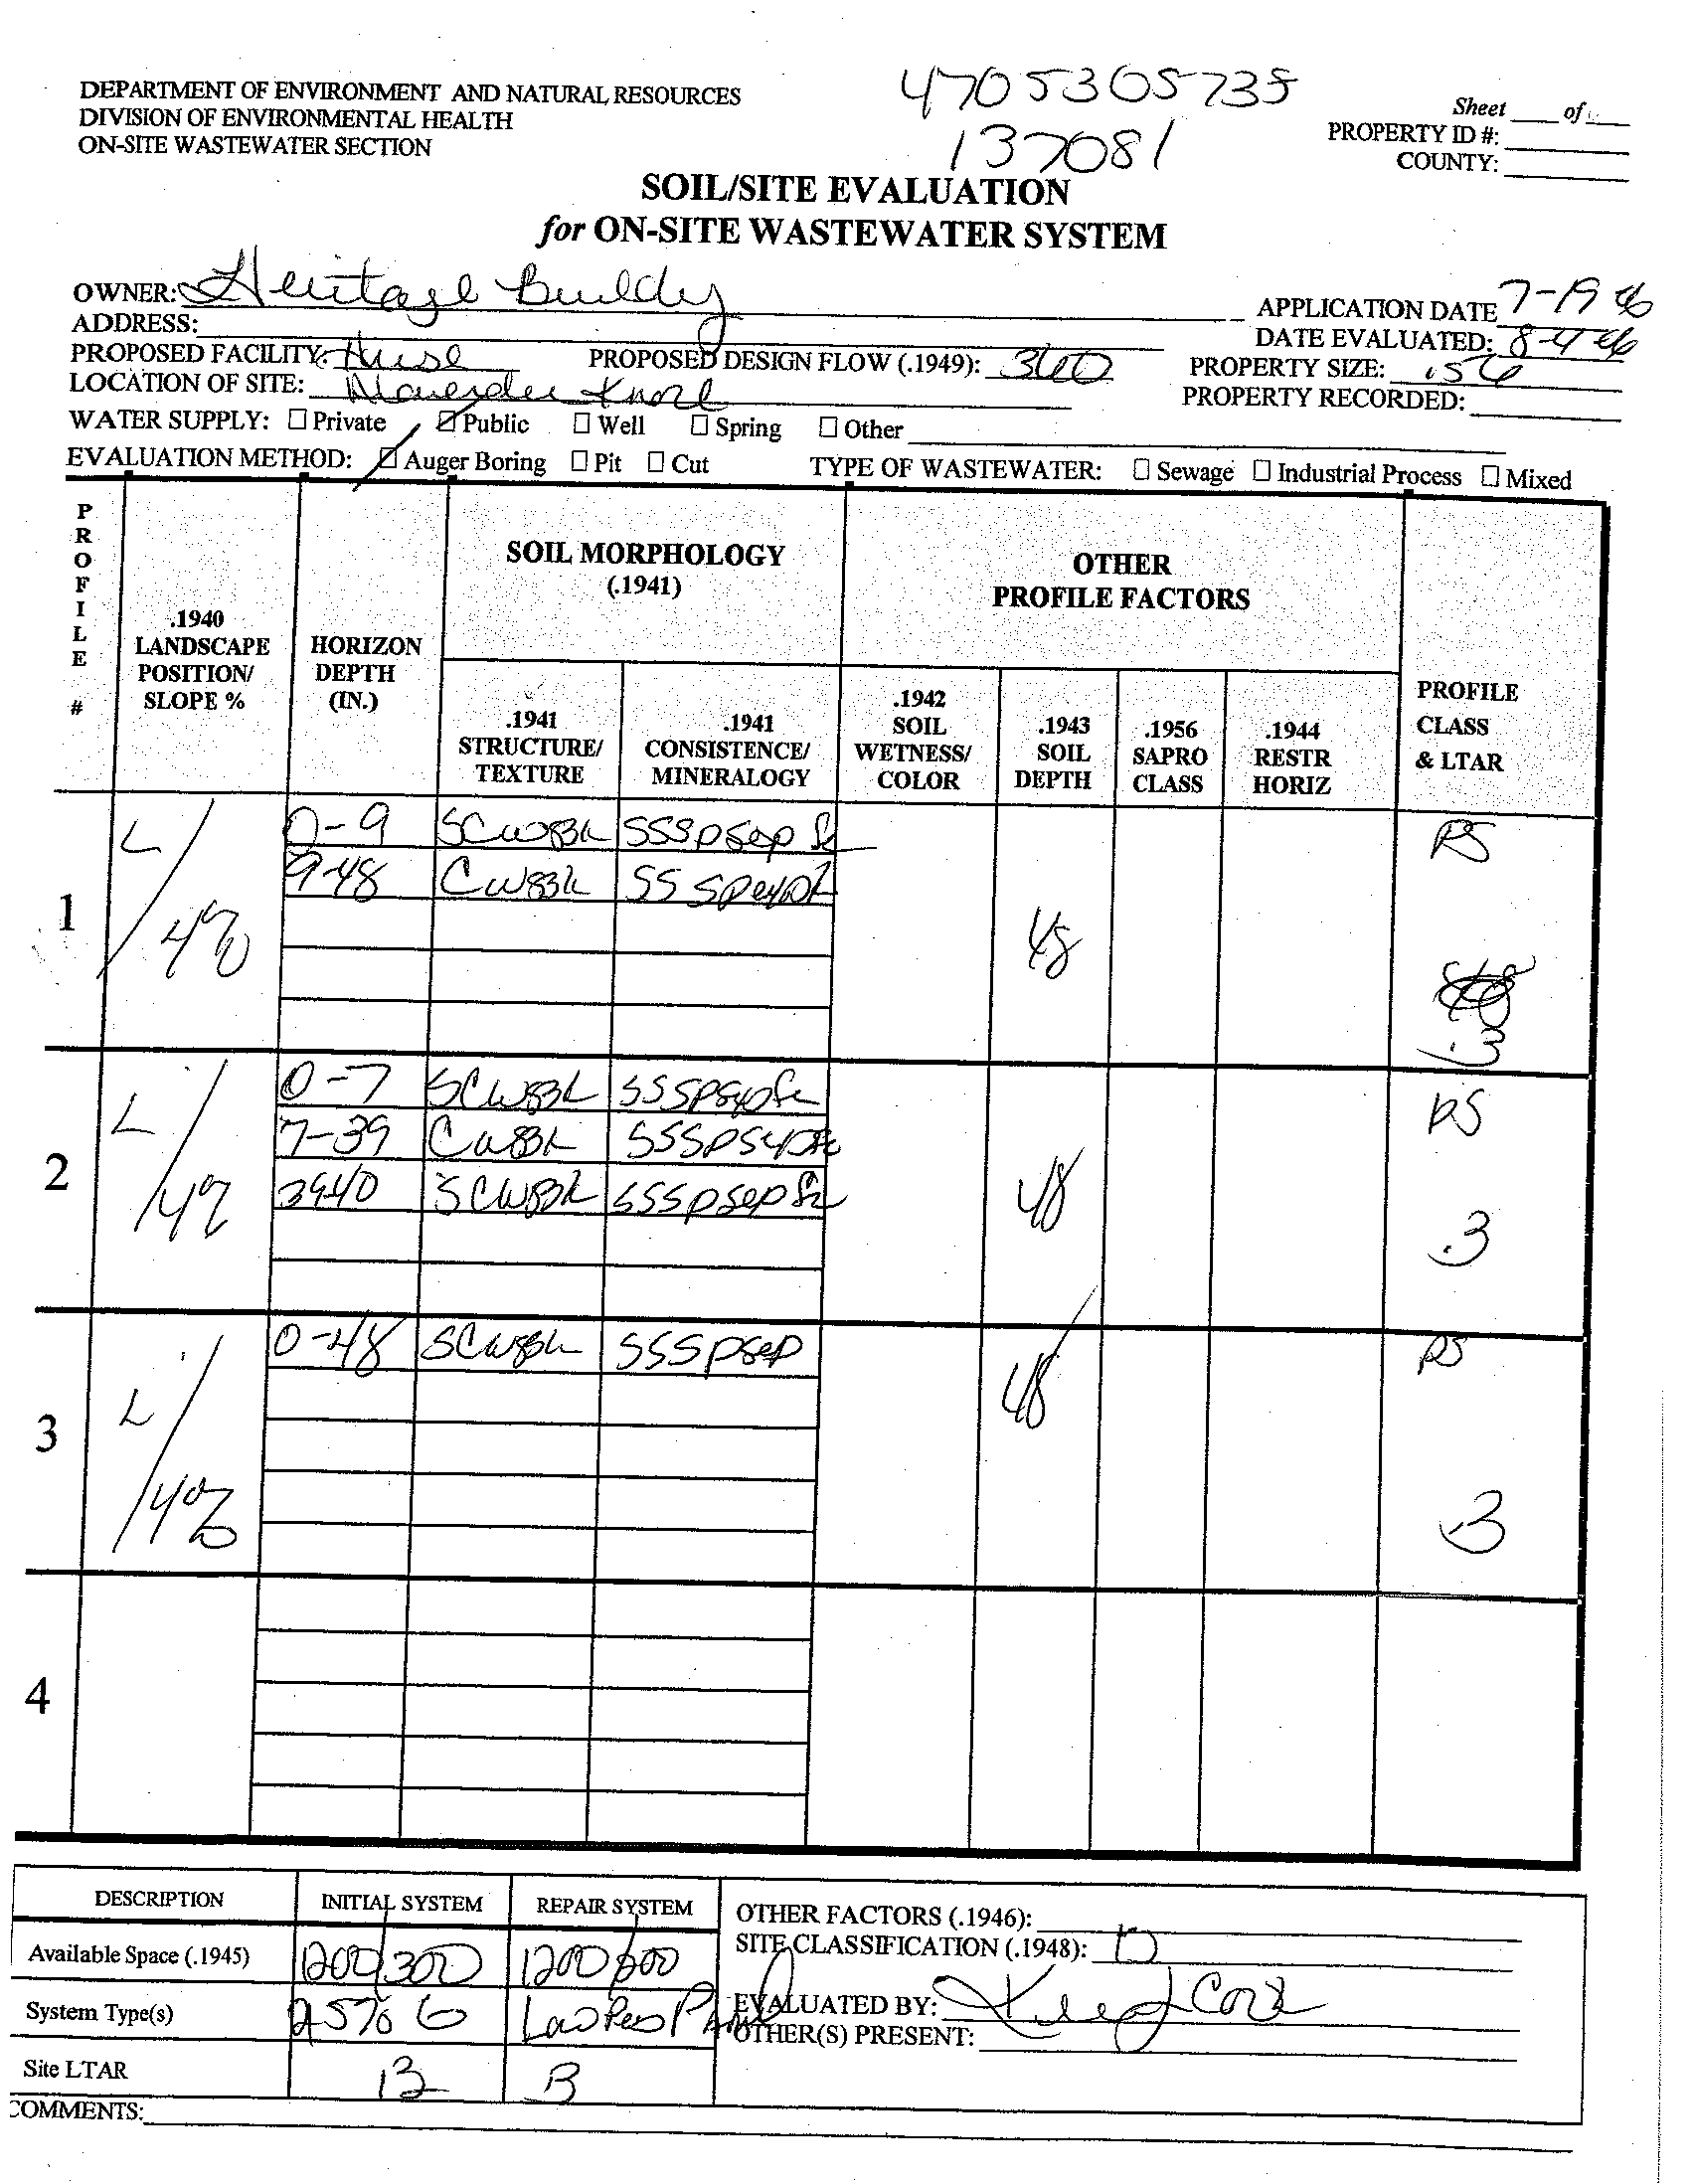 DEPARTMENT OF ENVIRONMENT AND NATURAL RESOURCES
DIVISION OF ENVIRONMENTAL HEALTH
ON-SITE WASTEWATER SECTION
4705305735
137081
Sheet ____ of ____
PROPERTY ID #:
COUNTY:
SOIL/SITE EVALUATION
for ON-SITE WASTEWATER SYSTEM
OWNER: Heritage
ADDRESS:
APPLICATION DATE 7-19
DATE EVALUATED: 8-4
PROPOSED FACILITY: House
PROPOSED DESIGN FLOW (.1949): 360
PROPERTY SIZE: .56
LOCATION OF SITE:
PROPERTY RECORDED:
WATER SUPPLY: ☐ Private ☑ Public ☐ Well ☐ Spring ☐ Other
EVALUATION METHOD: ☑ Auger Boring ☐ Pit ☐ Cut
TYPE OF WASTEWATER: ☐ Sewage ☐ Industrial Process ☐ Mixed
PROFILE #
.1940 LANDSCAPE POSITION/ SLOPE %
HORIZON DEPTH (IN.)
SOIL MORPHOLOGY (.1941)
.1941 STRUCTURE/ TEXTURE
.1941 CONSISTENCE/ MINERALOGY
OTHER PROFILE FACTORS
.1942 SOIL WETNESS/ COLOR
.1943 SOIL DEPTH
.1956 SAPRO CLASS
.1944 RESTR HORIZ
PROFILE CLASS & LTAR
1 L / 4%
0-9 SCWSBK SSSPSEXP
9-48 CWSBK SSSPSEXP
48
PS
.3
2 L / 4%
0-7 SCWSBK SSSPSEXP
7-39 CWSBK SSSPSEXP
SCWSBK SSSPSEXP
48
PS
.3
3 L / 4%
0-48 SCWSBK SSSPSEXP
48
PS
.3
4
DESCRIPTION INITIAL SYSTEM REPAIR SYSTEM
Available Space (.1945) 1200/300
System Type(s) 25%
Site LTAR .3 .3
OTHER FACTORS (.1946):
SITE CLASSIFICATION (.1948):
EVALUATED BY:
OTHER(S) PRESENT:
COMMENTS: